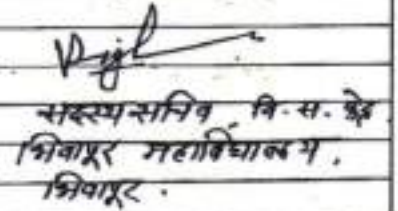 सदस्य सचिव, वि. स. केंद्र
भिवापूर महाविद्यालय,
भिवापूर.